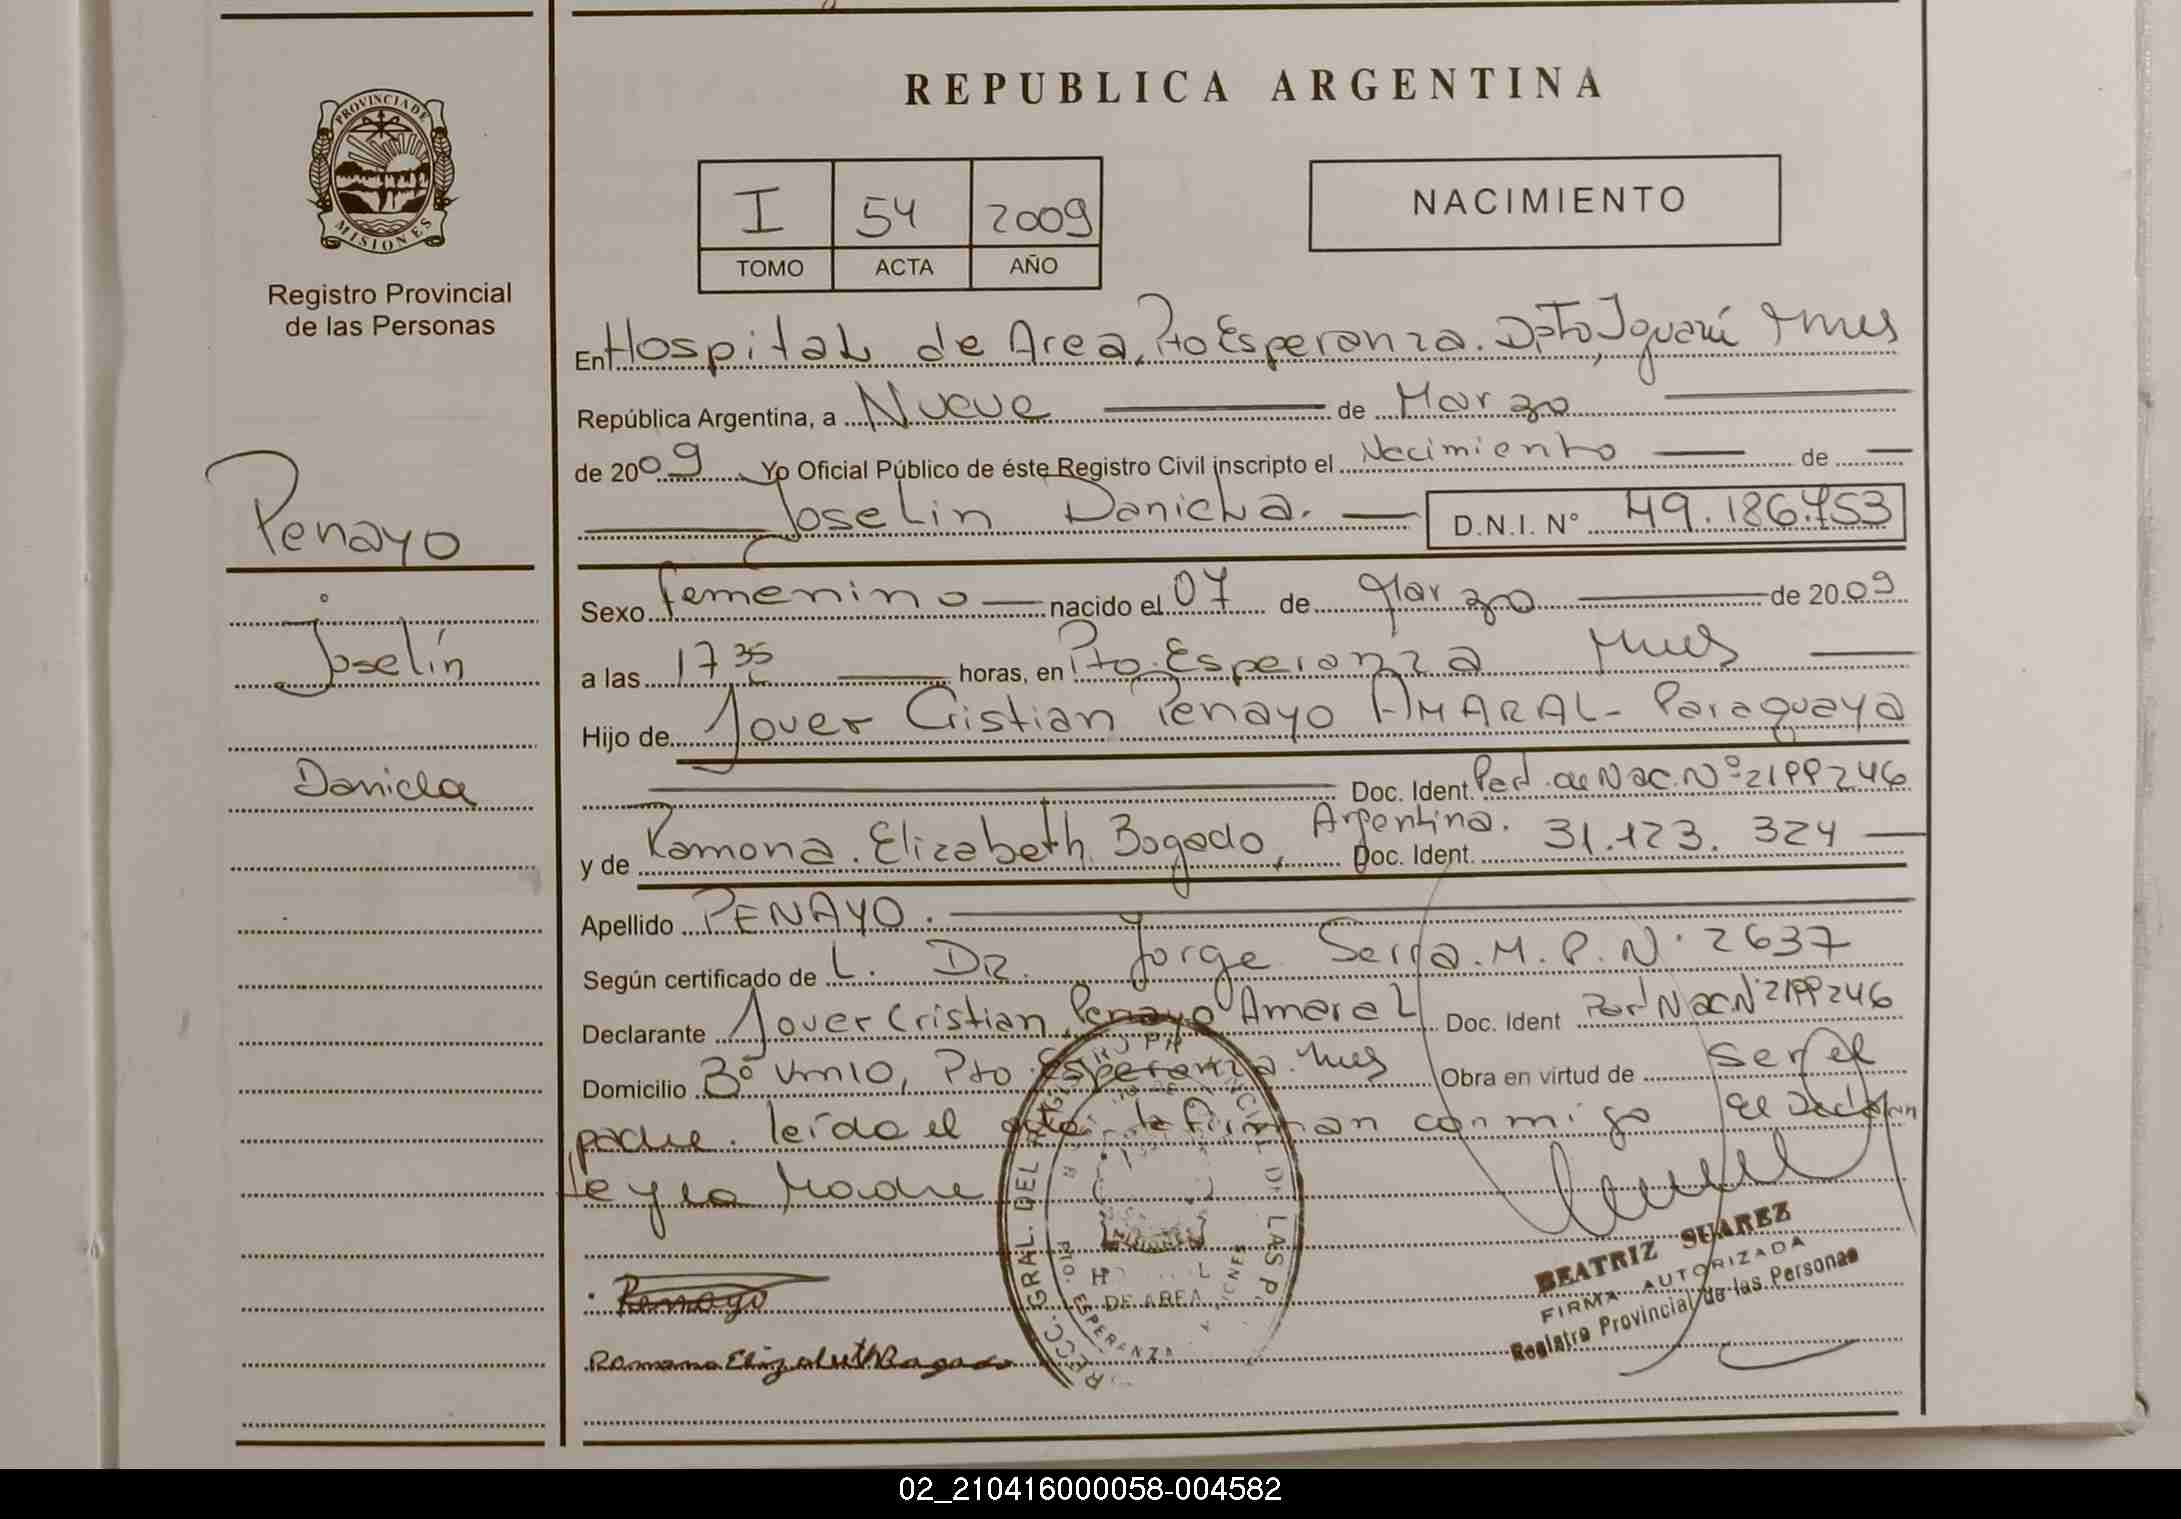 REPUBLICA ARGENTINA
PROVINCIA DE
MISIONES
Registro Provincial
de las Personas
I 54 2009
TOMO ACTA AÑO
NACIMIENTO
Penayo
Joselín
Daniela
En Hospital de Area, Pto Esperanza. Dpto, Iguazú Mnes
República Argentina, a Nueve de Marzo
de 2009 Yo Oficial Público de éste Registro Civil inscripto el Nacimiento de
Joselin Daniela. D.N.I. N° 49.186.753
Sexo femenino nacido el 07 de Marzo de 2009
a las 17 35 horas, en Pto. Esperanza Mnes
Hijo de Jover Cristian Penayo AMARAL - Paraguaya
Doc. Ident. de Nac. N° 2199246
y de Ramona. Elizabeth Bogado, Argentina. Doc. Ident. 31.123.324
Apellido PENAYO.
Según certificado de L. DR. Jorge Serra. M.P.N° 2637
Declarante Jover Cristian Penayo Amaral Doc. Ident Nac. N° 2199246
Domicilio Pto. Esperanza. Mnes Obra en virtud de Ser el
padre. leída el acta la firman conmigo el Declaran
te y la Madre
Penayo
Ramona Elizabeth Bogado
GRAL. DEL
DE AREA
ESPERANZA
BEATRIZ SUAREZ
FIRMA AUTORIZADA
Registro Provincial de las Personas
02_210416000058-004582